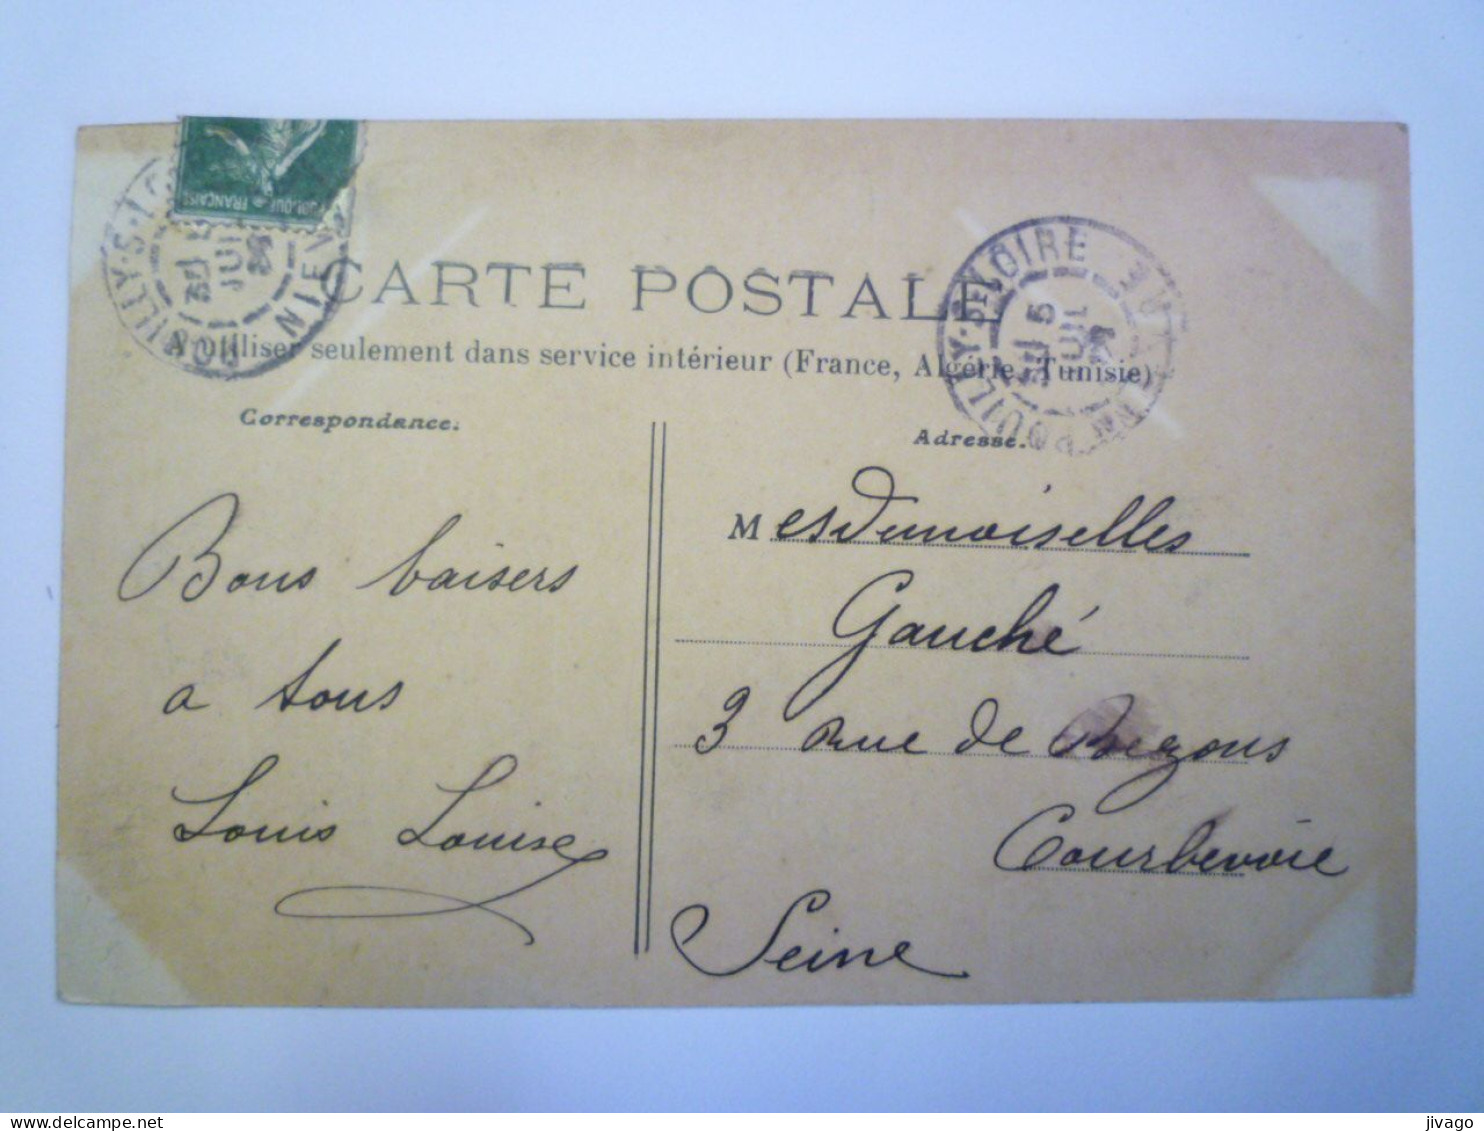 RÉPUBLIQUE FRANÇAISE
POUILLY-S-LOIRE
NIEVRE
POUILLY-S-LOIRE
NIEVRE
5
JUIL
CARTE POSTALE
A utiliser seulement dans service intérieur (France, Algérie, Tunisie)
Correspondance.
Adresse.
Bons baisers
a tous
Louis Louise
Mesdemoiselles
Gauché
3 Rue de Bezons
Courbevoie
Seine
jivago
delcampe.net